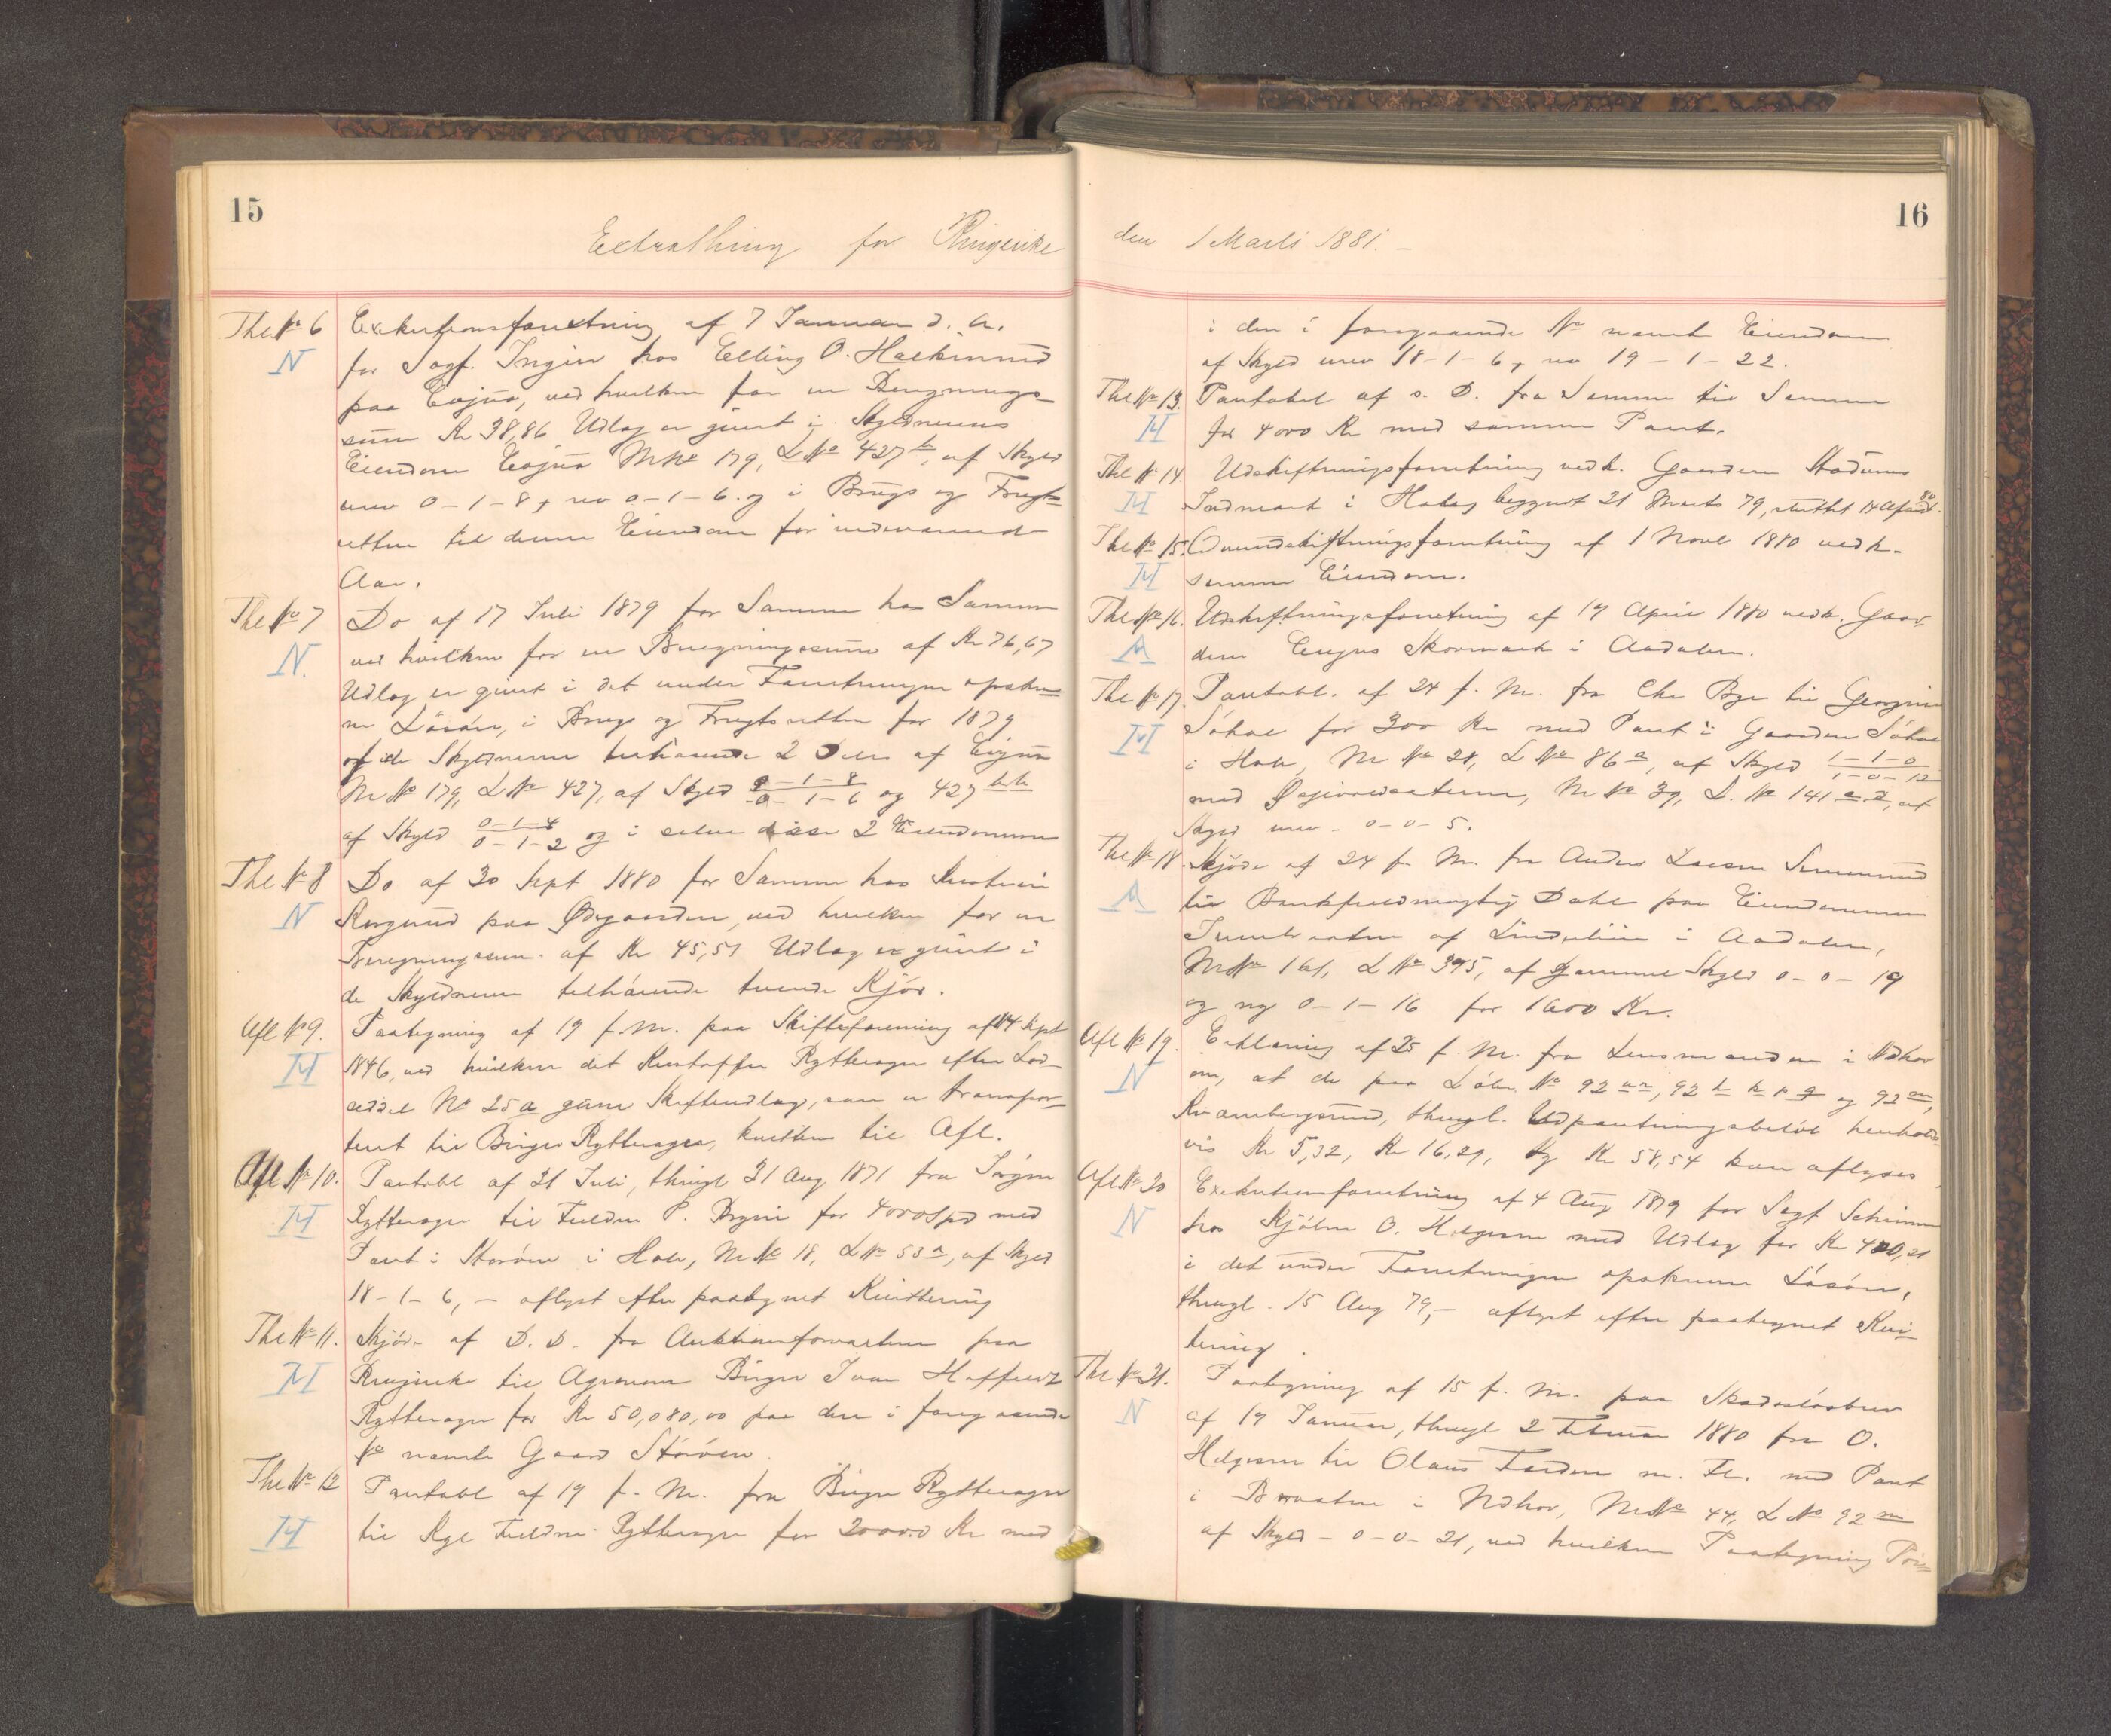 15
Extrathing for Ringerike
Thl № 6 Exekutionsforretning af 7 Januar d. A.
N for Sagf. Ingier hos Elling O. Hackinrud
paa, ved hvilken for en Beregnings-
sum Kr 38,86 Udlæg er givet i Skyldnerens
Eiendom M№ 179, L№ 427, af Skyld
urev 0-1-8, rev 0-1-6 og i Brugs og Frugt-
retten til denne Eiendom for indeværende
Aar.
Thl № 7 Do af 17 Juli 1879 for Samme hos Samme
N. ved hvilken for en Beregningssum af Kr 76,67
Udlæg er givet i det under Forretningen opskrev-
ne Løsøre, i Brugs og Frugtsretten for 1879
af de Skyldneren tilhørende 2 Dele af
M№ 179, L№ 427, af Skyld 0-1-8 0-1-6 og 427
af Skyld 0-1-4 0-1-2 og i selve disse 2 Eiendomme
Thl № 8 Do af 30 Sept 1880 for Samme hos
N paa Ødegaarden, ved hvilken for en
Beregningssum af Kr 45,51 Udlæg er givet i
de Skyldneren tilhørende tvende Kjør.
Afl № 9. Paategning af 19 f. M. paa Skifteforretning af 14 Sept
H 1846, ved hvilken det Kristoffer Rytterager efter Lod-
seddel № 25a givne Skifteudlæg, som er transpor-
tert til Birger Rytterager, kvitteres til Afl.
Afl № 10. Pantobl af 21 Juli, thingl 31 Aug 1871 fra Jørgen
H Rytterager til P. for 4000 Spd med
Pant i Storøen i Hole, M№ 18, L№ 53a, af Skyld
18-1-6, - aflyst efter paategnet Kvittering
Thl № 11. Skjøde af D. D. fra Auktionsforvalteren paa
H Ringerike til Agronom Birger Ivar Hoffertz
Rytterager for Kr 50,080,00 paa den i foregaaende
№ nævnte Gaard Storøen.
Thl № 12 Pantobl af 19 f. M. fra Birger Rytterager
H til Kgl Fuldm. Rytterager for 20000 Kr med
16
den 1 Marts 1881. -
i den i foregaaende № nævnte Eiendom
af Skyld urev 18-1-6, rev 19-1-22.
Thl № 13. Pantobl af s. D. fra Samme til Samme
H for 4000 Kr med samme Pant.
Thl № 14. Udskiftningsforretning vedk. Gaarden Stadums
H Indmark i Hole, begyndt 21 Marts 79, sluttet 14 April 80.
Thl № 15. Overudskiftningsforretning af 1 Novb 1880 vedk.
H samme Eiendom.
Thl № 16. Udskiftningsforretning af 17 April 1880 vedk. Gaar-
A den Skovmark i Aadalen.
Thl № 17. Pantobl. af 24 f. M. fra Chr Bye til Georgine
H for 300 Kr med Pant i Gaarden
i Hole, M№ 28, L№ 86a, af Skyld 1-1-0 1-0-12
med M№ 39, L.№ 141, af
Skyld urev - 0-0-5.
Thl № 18. Skjøde af 24 f. M. fra Anders Larsen
A til Bankfuldmægtig Dahl paa Eiendommen
af i Aadalen,
M№ 161, L№ 395, af gammel Skyld 0-0-19
og ny 0-1-16 for 1600 Kr.
Afl № 19. Erklæring af 25 f. M. fra Lensmanden i Ndhov
N om, at de paa Løbe № 92, 92 og 92,
thingl. Udpantningsbeløb henholds-
vis Kr 5,32, Kr 16,29, og Kr 58,54 kan aflyses
Afl № 20 Exekutionsforretning af 4 Aug 1879 for Sagf
N hos O. Helgesen med Udlæg for Kr
i det under Forretningen opskrevne Løsøre,
thingl. 15 Aug 79, - aflyst efter paategnet Kvit-
tering.
Thl № 21. Paategning af 15 f. M. paa Skadesløsbrev
N af 17 Januar, thingl 2 Februar 1880 fra O.
Helgesen til Olaus m. Fl. med Pant
i Braaten i Ndhov, M№ 44, L№ 92m
af Skyld - 0-0-21, ved hvilken Paategning